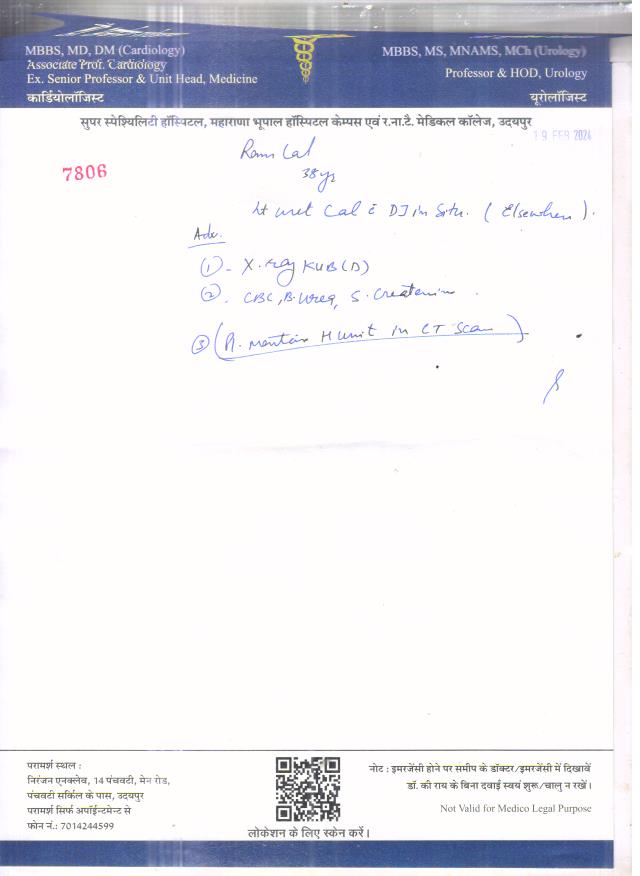 MBBS, MD, DM (Cardiology)
Associate Prof. Cardiology
Ex. Senior Professor & Unit Head, Medicine
कार्डियोलॉजिस्ट
MBBS, MS, MNAMS, MCh (Urology)
Professor & HOD, Urology
यूरोलॉजिस्ट
सुपर स्पेश्यिलिटी हॉस्पिटल, महाराणा भूपाल हॉस्पिटल केम्पस एवं र.ना.टै. मेडिकल कॉलेज, उदयपुर
19 FEB 2024
7806
Ram Lal
38 yr
Lt uret Cal c̄ DJ in Situ. (Elsewhere).
Adv.
① - X-ray KUB (D)
②. CBC, B. Urea, S. Creatinin.
③ (R. mention H unit in CT Scan)
परामर्श स्थल :
निरंजन एनक्लेव, 14 पंचवटी, मेन रोड,
पंचवटी सर्किल के पास, उदयपुर
परामर्श सिर्फ अपॉईन्टमेन्ट से
फोन नं.: 7014244599
लोकेशन के लिए स्केन करें।
नोट : इमरजेंसी होने पर समीप के डॉक्टर/इमरजेंसी में दिखावें
डॉ. की राय के बिना दवाई स्वयं शुरू/चालु न रखें।
Not Valid for Medico Legal Purpose